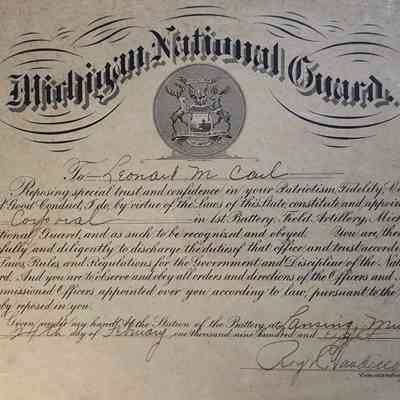 Michigan National Guard.
To Leonard M Carl
Reposing special trust and confidence in your Patriotism, Fidelity,
Good Conduct, I do, by virtue of the Laws of this State, constitute and appoin
Corporal in 1st Battery, Field Artillery, Mich
tional Guard, and as such to be recognized and obeyed. You are, there
fully and diligently to discharge the duties of that office and trust accordi
Laws, Rules and Regulations for the Government and Discipline of the Nat
rd. And you are to observe and obey all orders and directions of the Officers and
mmissioned Officers appointed over you according to law, pursuant to the
by reposed in you.
Given under my hand at the Station of the Battery, at Lansing,
24th day of February one thousand nine hundred and
Roy C.